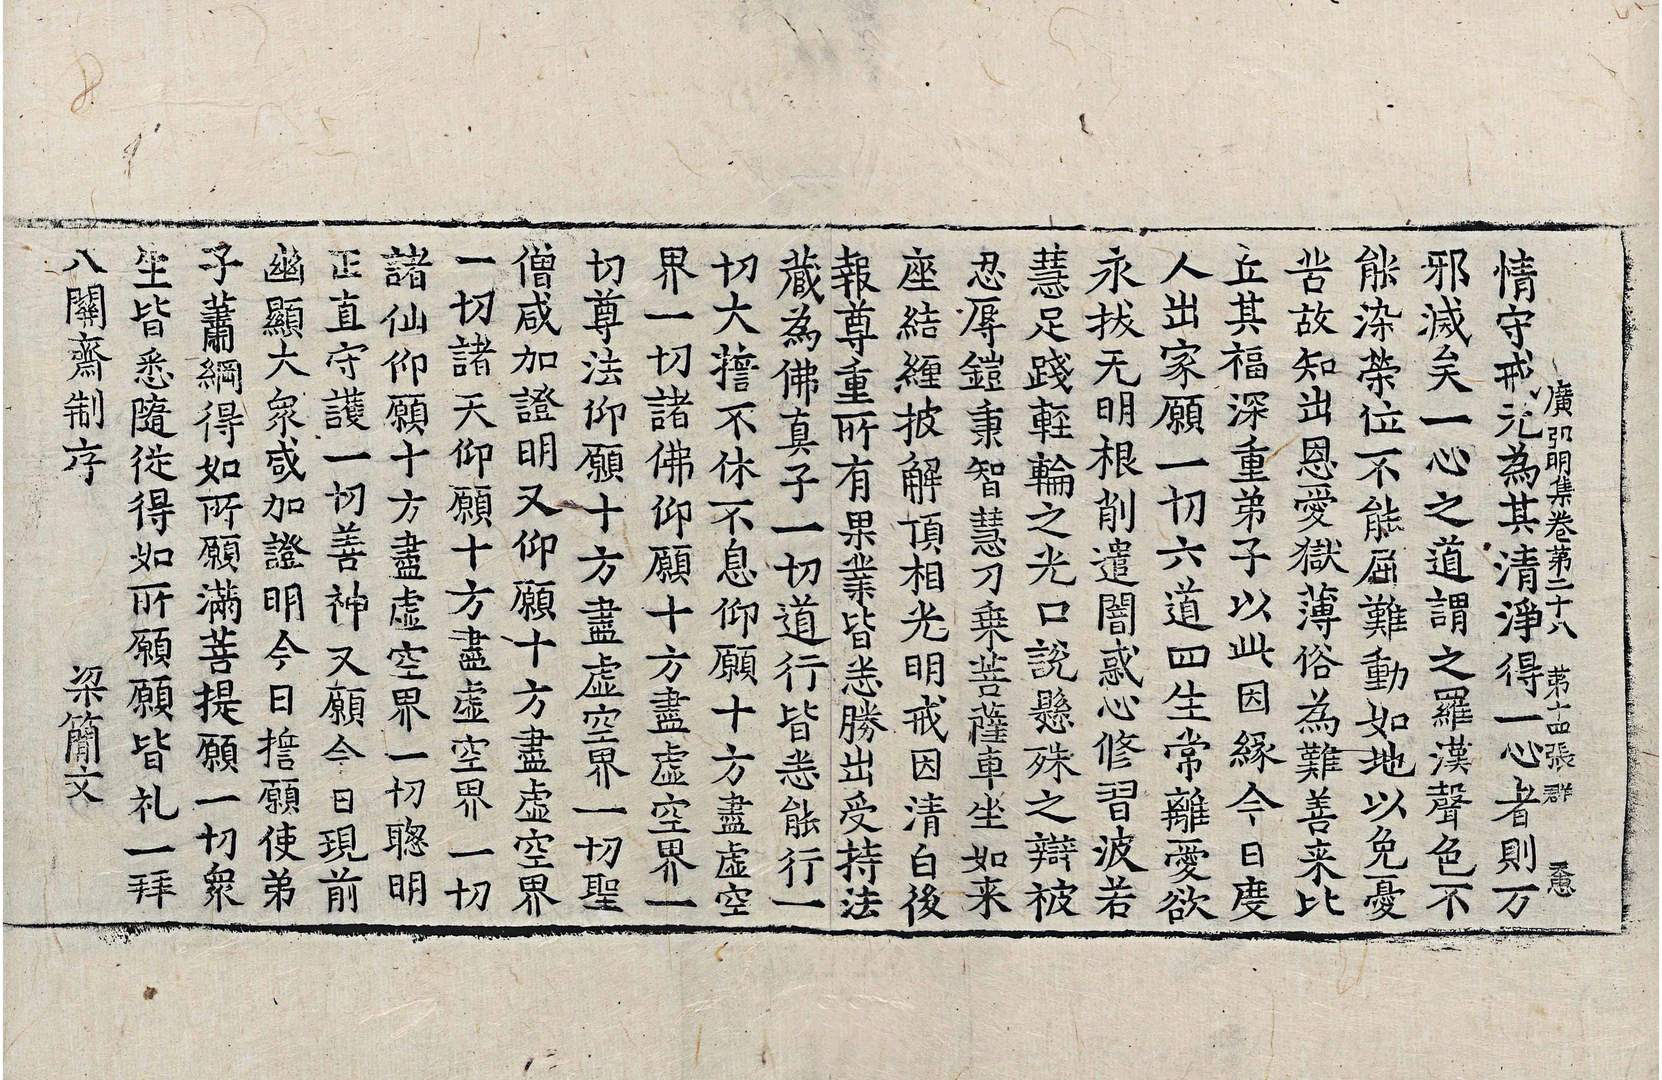 廣弘明集卷第二十八 第十四張 群 慝
情守戒无為其清淨得一心者則万
邪滅矣一心之道謂之羅漢聲色不
能染榮位不能屈難動如地以免憂
苦故知出恩愛獄薄俗為難善来比
丘其福深重弟子以此因緣今日度
人出家願一切六道四生常離愛欲
永拔无明根削遣闇惑心修習波若
慧足踐軽輪之光口說懸殊之辯被
忍辱鎧秉智慧刀乗菩薩車坐如来
座結纏披解頂相光明戒因清白後
報尊重所有果業皆悉勝出受持法
藏為佛真子一切道行皆悉能行一
切大擔不休不息仰願十方盡虛空
界一切諸佛仰願十方盡虛空界一
切尊法仰願十方盡虛空界一切聖
僧咸加證明又仰願十方盡虛空界
一切諸天仰願十方盡虛空界一切
諸仙仰願十方盡虛空界一切聦明
正直守護一切善神又願今日現前
幽顯大衆咸加證明今日擔願使弟
子蕭綱得如所願滿菩提願一切衆
生皆悉隨從得如所願願皆礼一拜
八關齋制序 梁簡文